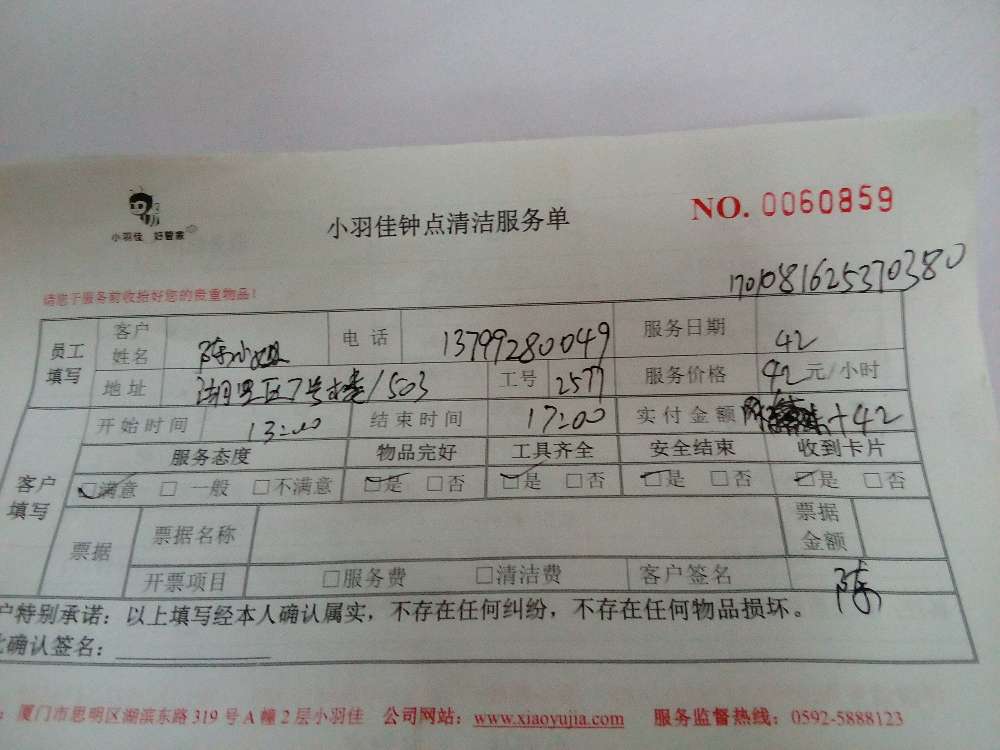 小羽佳 好管家
小羽佳钟点清洁服务单
NO. 0060859
请您于服务前收拾好您的贵重物品!
1701081625370380
员工填写 客户姓名 陈小姐 电话 13799280049 服务日期 42
地址 湖里区7号楼/503 工号 2577 服务价格 42元/小时
客户填写 开始时间 13:00 结束时间 17:00 实付金额 +42
服务态度 物品完好 工具齐全 安全结束 收到卡片
☑满意 □一般 □不满意 ☑是 □否 ☑是 □否 ☑是 □否 ☑是 □否
票据 票据名称 票据金额
开票项目 □服务费 □清洁费 客户签名 陈
户特别承诺:以上填写经本人确认属实,不存在任何纠纷,不存在任何物品损坏。
此确认签名:
:厦门市思明区湖滨东路 319 号 A 幢 2 层小羽佳 公司网站:www.xiaoyujia.com 服务监督热线:0592-5888123